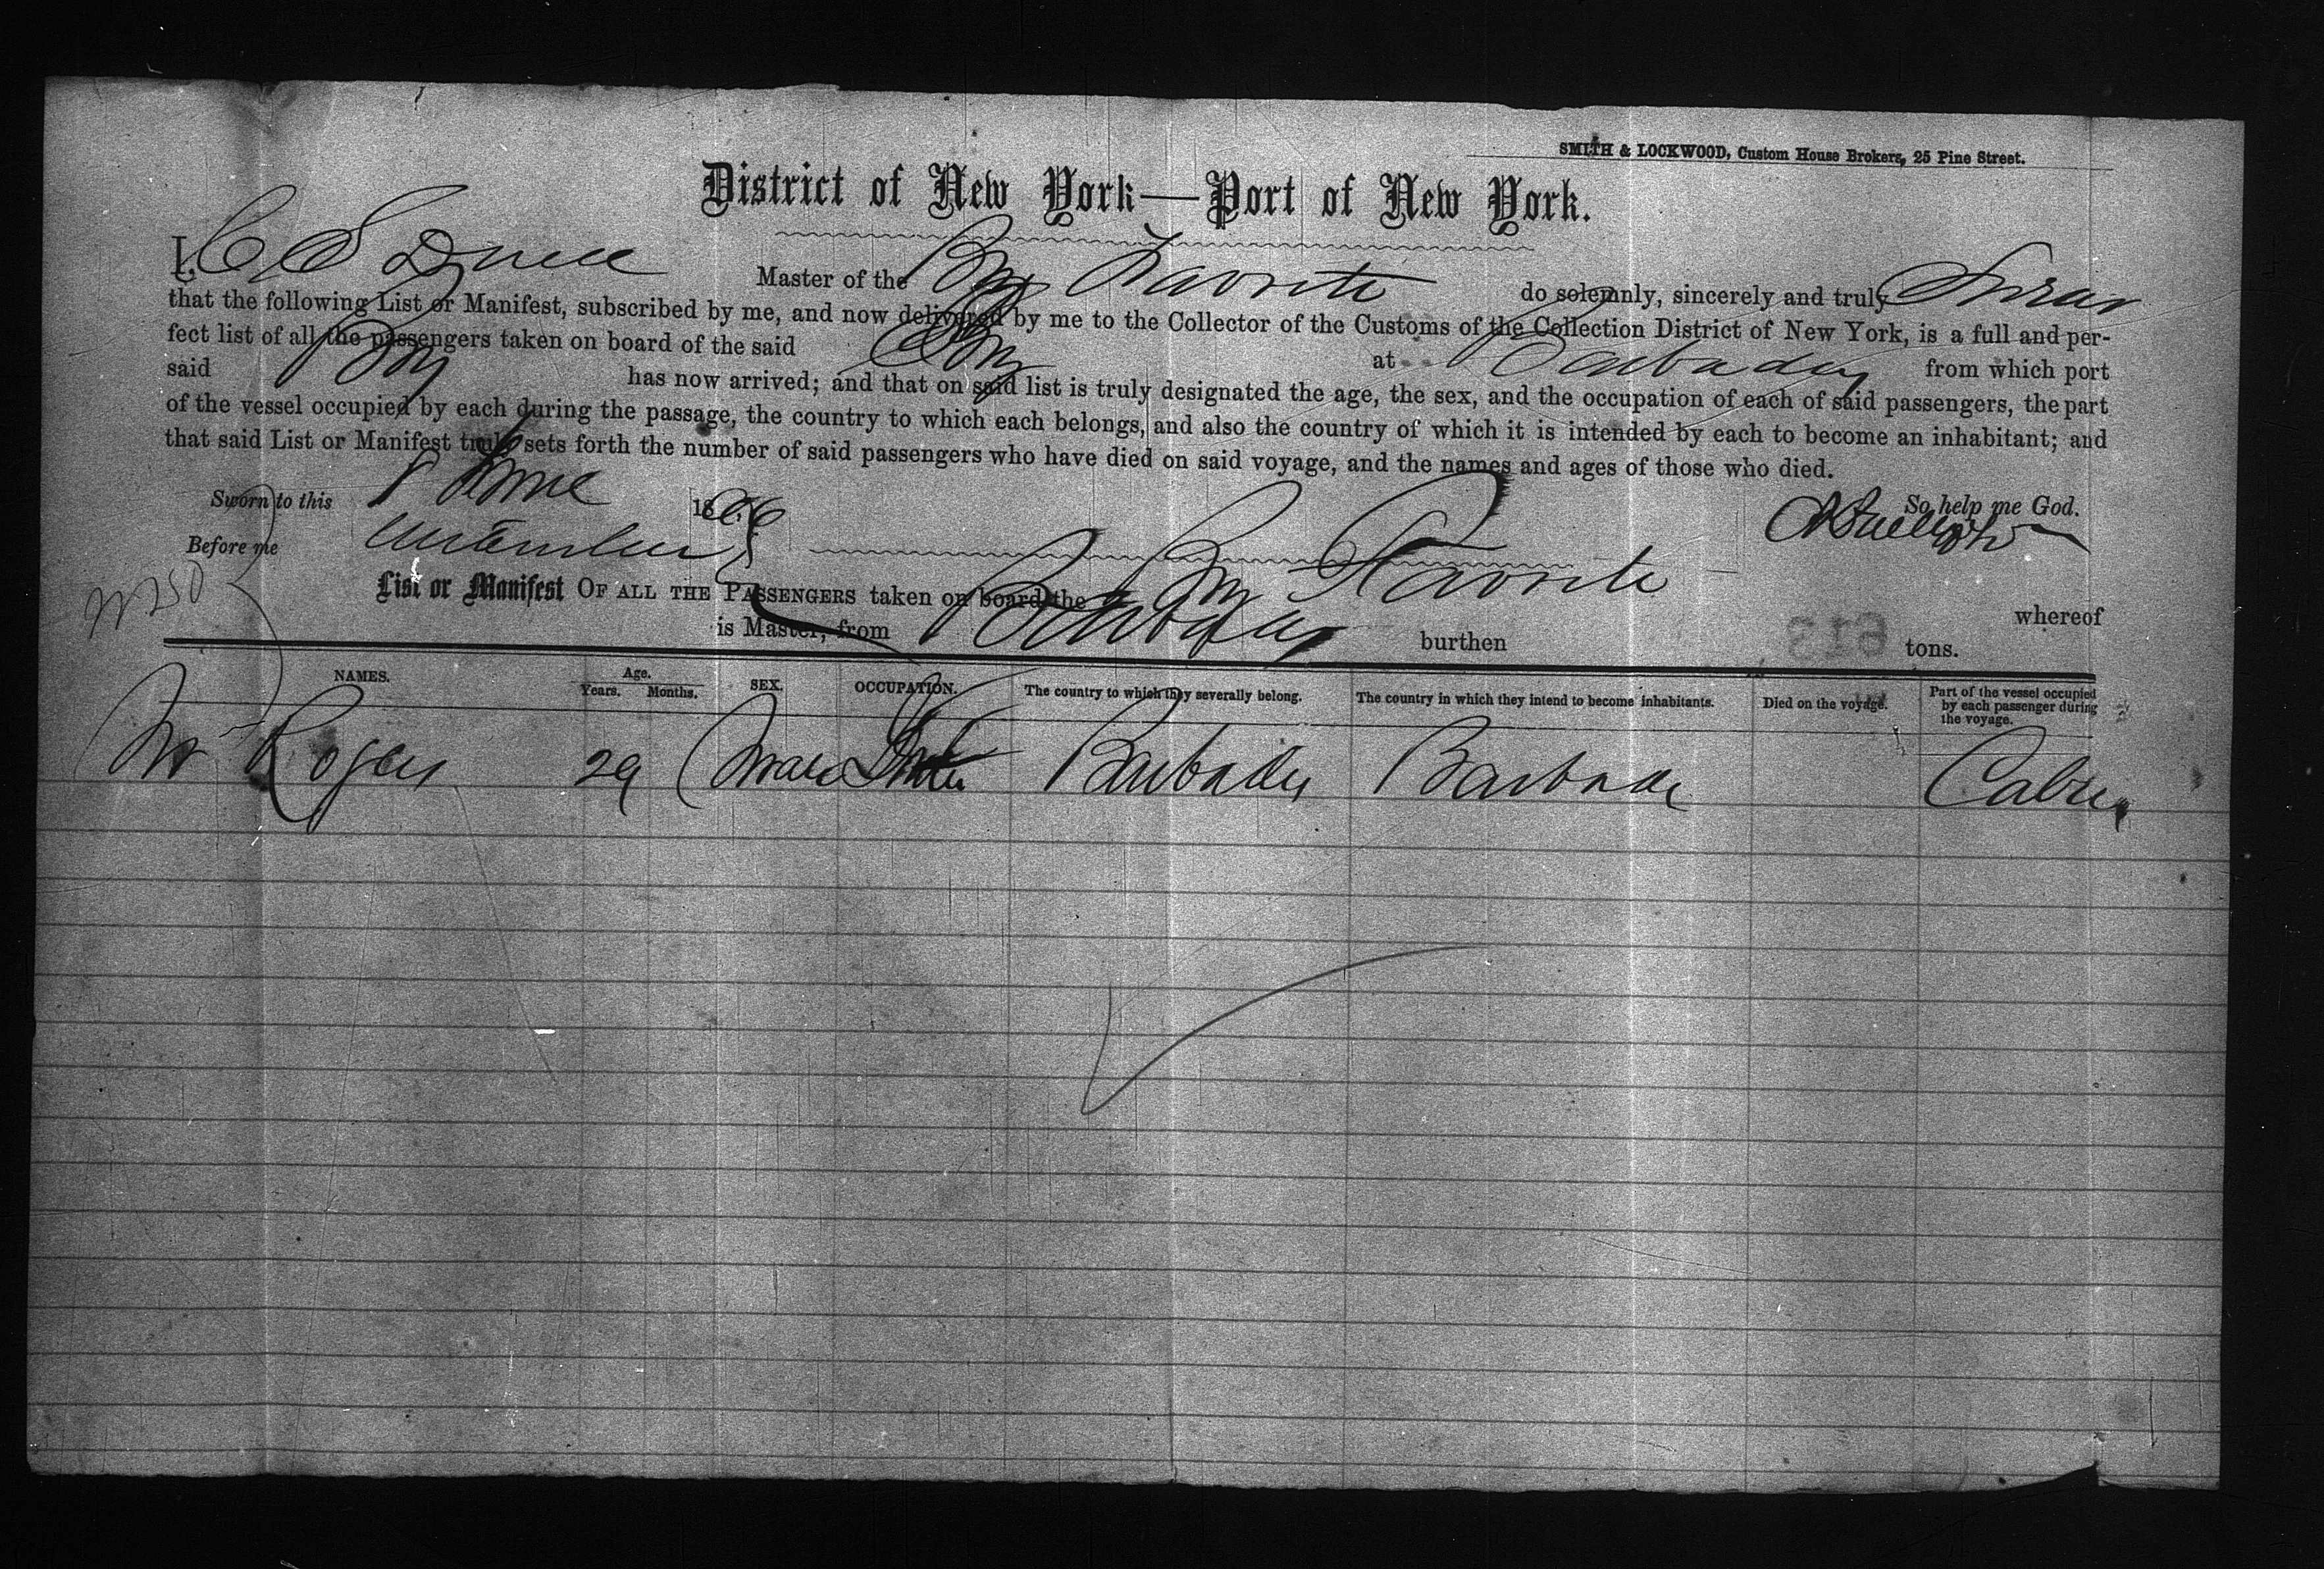 SMITH & LOCKWOOD, Custom House Brokers, 25 Pine Street.
District of New York—Port of New York.
I, Master of the Brig Favorite do solemnly, sincerely and truly Swear
that the following List or Manifest, subscribed by me, and now delivered by me to the Collector of the Customs of the Collection District of New York, is a full and per-
fect list of all the passengers taken on board of the said Brig at Barbados from which port
said Brig has now arrived; and that on said list is truly designated the age, the sex, and the occupation of each of said passengers, the part
of the vessel occupied by each during the passage, the country to which each belongs, and also the country of which it is intended by each to become an inhabitant; and
that said List or Manifest truly sets forth the number of said passengers who have died on said voyage, and the names and ages of those who died.
Sworn to this 1866 So help me God.
Before me
List or Manifest OF ALL THE PASSENGERS taken on board the Brig Favorite whereof
is Master, from Barbados burthen 613 tons.
NAMES. Age. Years. Months. SEX. OCCUPATION. The country to which they severally belong. The country in which they intend to become inhabitants. Died on the voyage. Part of the vessel occupied by each passenger during the voyage.
Mr Rogers 29 Male Barbados Barbados Cabin